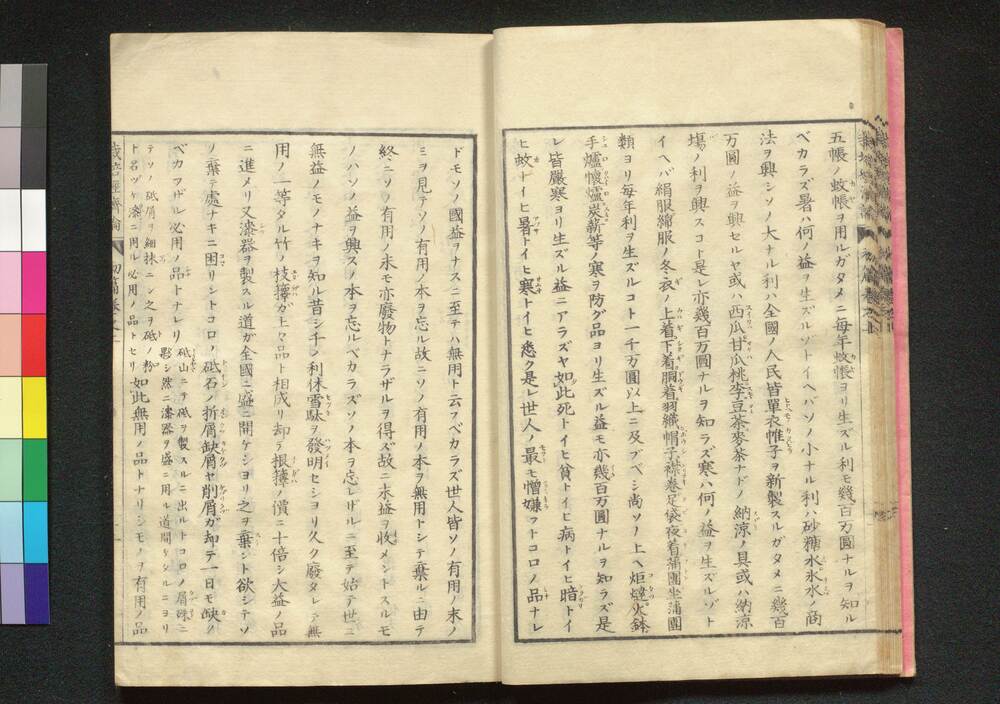 五帳ノ蚊帳ヲ用ルガタメニ毎年蚊帳ヨリ生ズル利モ幾百万圓ナルヲ知ル
ベカラズ暑ハ何ノ益ヲ生ズルゾトイヘバソノ小ナル利ハ砂糖水氷水ノ商
法ヲ興シソノ大ナル利ハ全國ノ人民皆單衣帷子ヲ新製スルガタメニ幾百
万圓ノ益ヲ興セルヤ或ハ西瓜甘瓜桃李豆茶麥茶ナドノ納涼ノ具或ハ納涼
塲ノ利ヲ興スコト是レ亦幾百万圓ナルヲ知ラズ寒ハ何ノ益ヲ生ズルゾト
イヘバ絹服綿服ノ冬衣ノ上着下着胴着羽織帽子襟卷足袋夜着蒲團坐蒲團
類ヨリ毎年利ヲ生ズルコト一千万圓以上ニ及ブベシ尚ソノ上ヘ炬燵火鉢
手爐懷爐炭薪等ノ寒ヲ防グ品ヨリ生ズル益モ亦幾百万圓ナルヲ知ラズ是
レ皆嚴寒ヨリ生ズル益ニアラズヤ如此死トイヒ貧トイヒ病トイヒ暗トイ
ヒ蚊トイヒ暑トイヒ寒トイヒ悉ク是レ世人ノ最モ憎嫌フトコロノ品ナレ
ドモソノ國益ヲナスニ至テハ無用ト云フベカラズ世人皆ソノ有用ノ末ノ
ミヲ見テソノ有用ノ本ヲ忘ル故ニソノ有用ノ本ヲ無用トシテ棄ルニ由テ
終ニソノ有用ノ末モ亦廢物トナラザルヲ得ズ故ニ末益ヲ收メントスルモ
ノハソノ益ヲ興スノ本ヲ忘ルベカラズソノ本ヲ忘レザルニ至テ始テ世ニ
無益ノモノナキヲ知ル昔シ千ノ利休雪駄ヲ發明セシヨリ久ク廢タレテ無
用ノ一等タル竹ノ枝籜ガ上々品ト相成リ却テ根籜ノ價ニ十倍シ大益ノ品
ニ進メリ又漆器ヲ製スル道ガ全國ニ盛ニ開ケシヨリ之ヲ棄ント欲シテソ
ノ棄テ處ナキニ困リシトコロノ砥石ノ折屑缺屑ヤ削屑ガ却テ一日モ缺ク
ベカラザル必用ノ品トナレリ
砥山ニテ砥ヲ製スルニ出ルトコロノ屑殊ニ
夥シ然ニ漆器ヲ盛ニ用ル道開ケタルニヨリ
テソノ砥屑ヲ細抹ニシ之ヲ砥ノ粉
ト名ヅケ漆ニ用ル必用ノ品トセリ
如此無用ノ品トナリシモノヲ有用ノ品
初篇卷之上